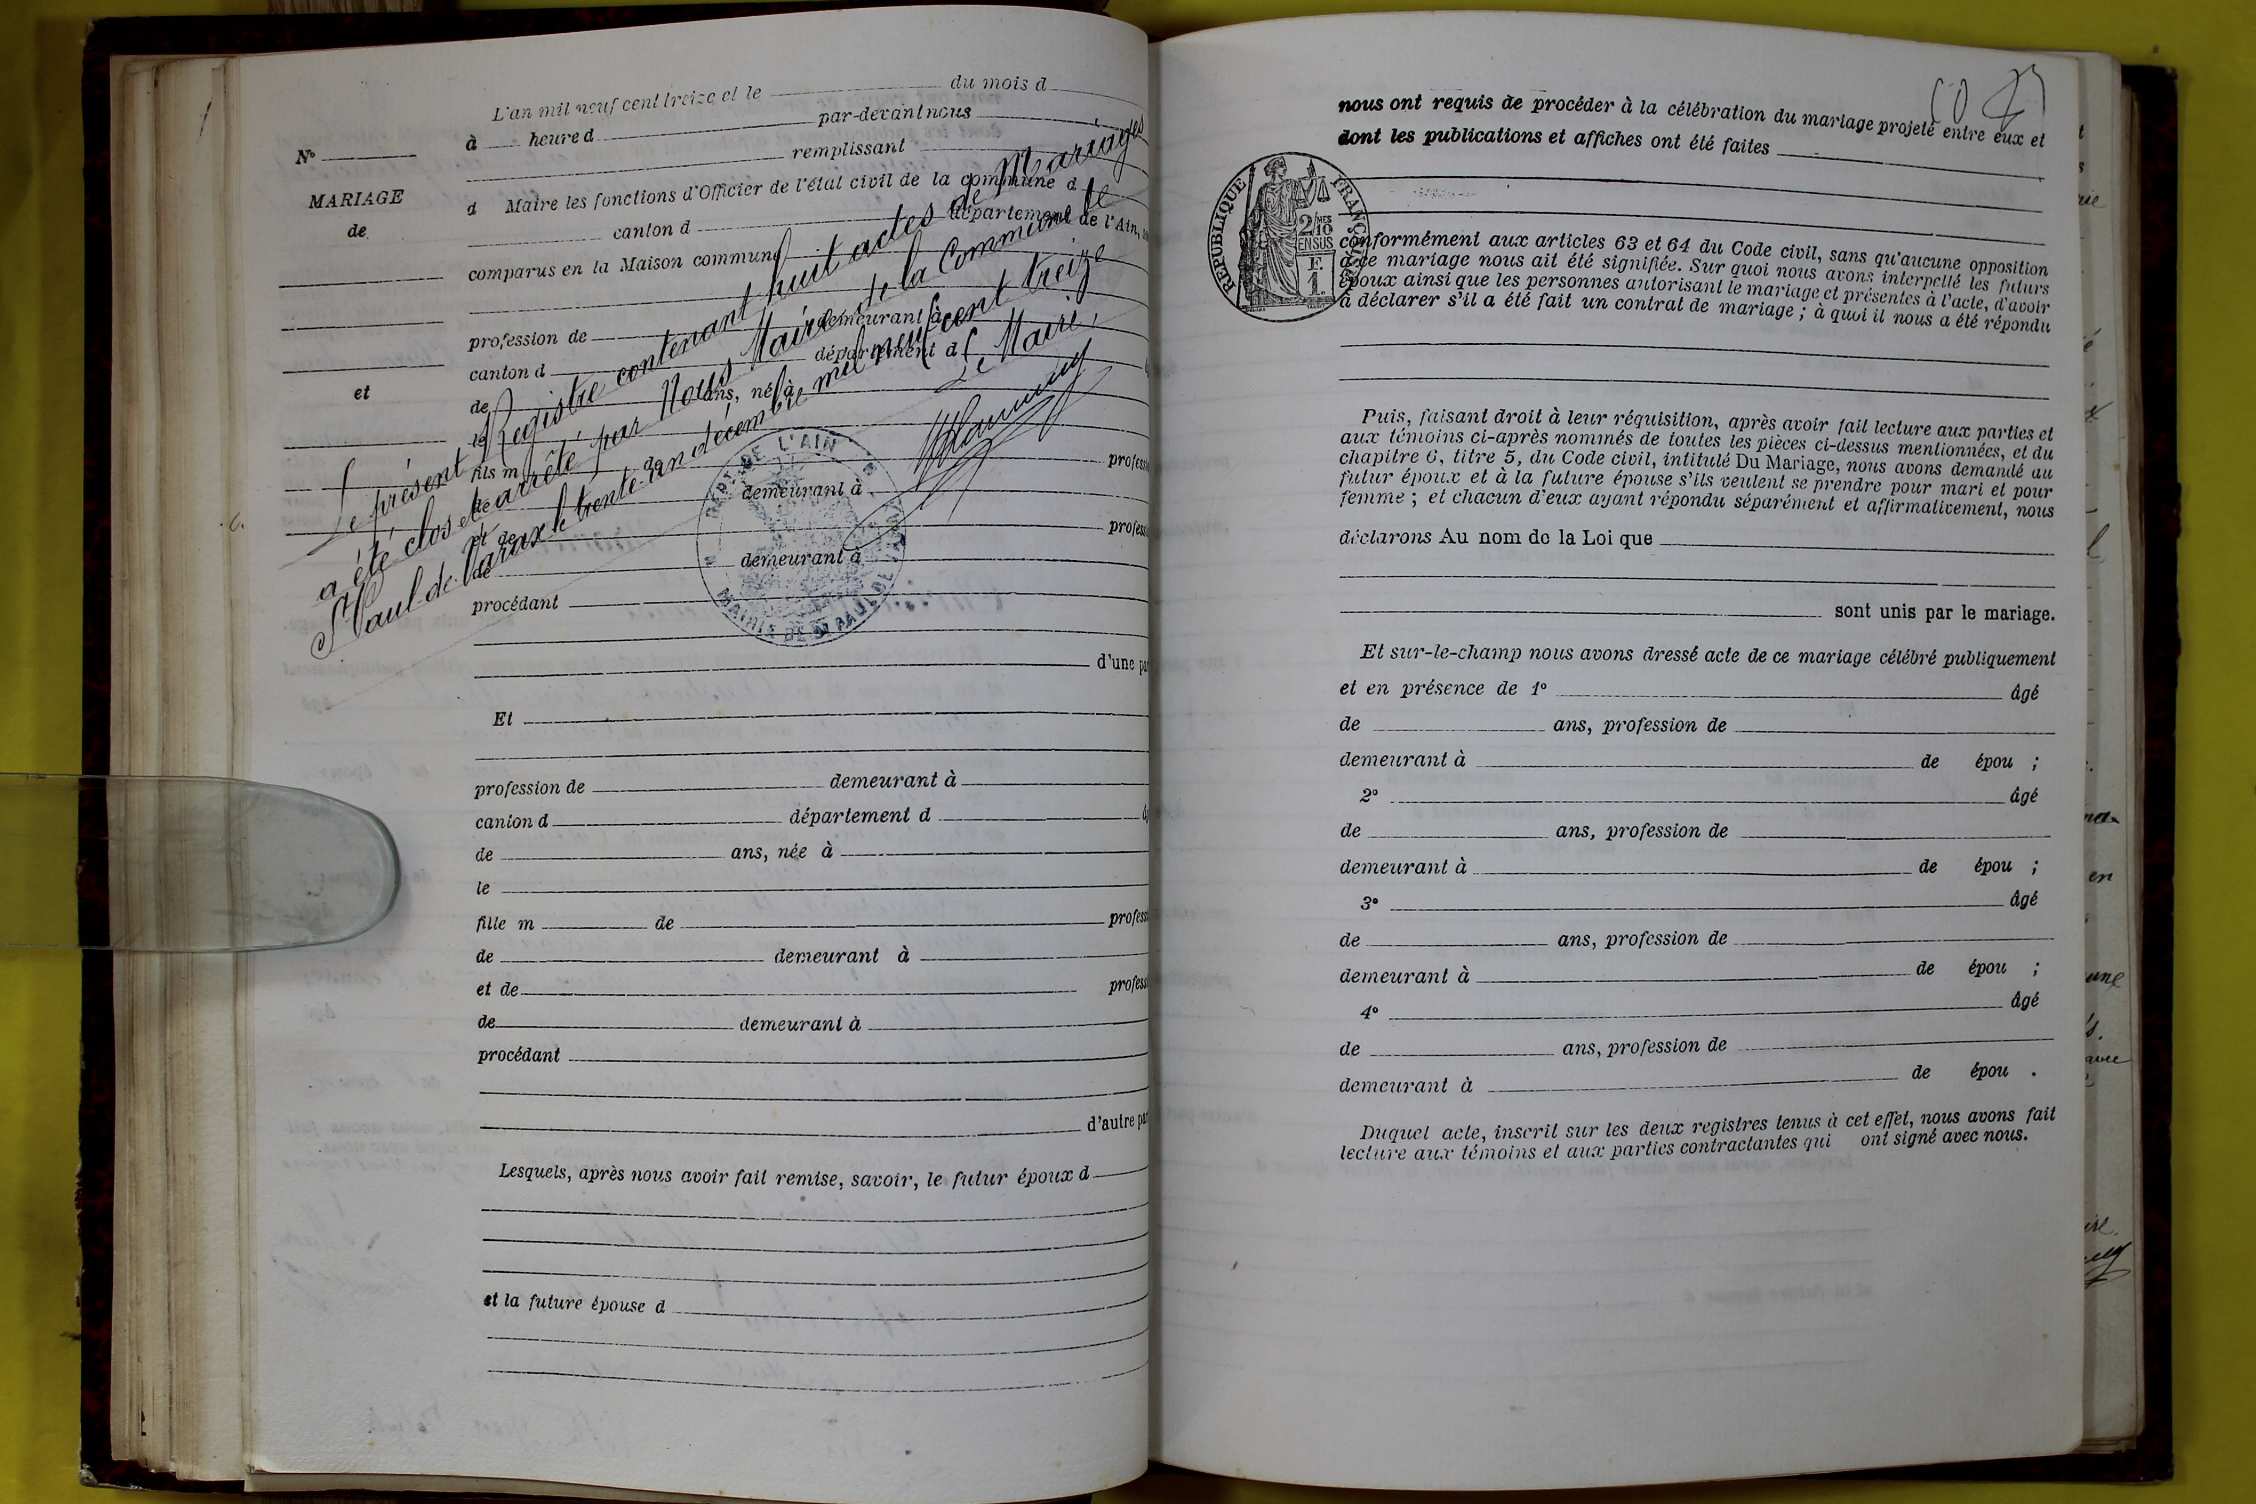 L'an mil neuf cent treize et le du mois d
à heure d par-devant nous
remplissant
d Maire les fonctions d'Officier de l'état civil de la commune d
canton d département de l'Ain,
comparus en la Maison commune
N°
MARIAGE
de
et
profession de demeurant à
canton d département d
de ans, né à
le
fils m de profess
de demeurant à
et de profess
de demeurant à
procédant
d'une par
Le présent Registre contenant huit actes de Mariages
a été clos et arrêté par Nous, Maire de la Commune de
St Paul-de-Varax le trente-un décembre mil neuf cent treize
Le Maire,
DEPT DE L'AIN
MAIRIE DE ST PAUL DE VARAX
Et
profession de demeurant à
canton d département d
de ans, née à
le
fille m de profess
de demeurant à
et de profess
de demeurant à
procédant
d'autre par
Lesquels, après nous avoir fait remise, savoir, le futur époux d
et la future épouse d
nous ont requis de procéder à la célébration du mariage projeté entre eux et
dont les publications et affiches ont été faites
RÉPUBLIQUE FRANÇAISE
2/10 MES
EN SUS
F.
1.
conformément aux articles 63 et 64 du Code civil, sans qu'aucune opposition
à ce mariage nous ait été signifiée. Sur quoi nous avons interpellé les futurs
époux ainsi que les personnes autorisant le mariage et présentes à l'acte, d'avoir
à déclarer s'il a été fait un contrat de mariage ; à quoi il nous a été répondu
Puis, faisant droit à leur réquisition, après avoir fait lecture aux parties et
aux témoins ci-après nommés de toutes les pièces ci-dessus mentionnées, et du
chapitre 6, titre 5, du Code civil, intitulé Du Mariage, nous avons demandé au
futur époux et à la future épouse s'ils veulent se prendre pour mari et pour
femme ; et chacun d'eux ayant répondu séparément et affirmativement, nous
déclarons Au nom de la Loi que
sont unis par le mariage.
Et sur-le-champ nous avons dressé acte de ce mariage célébré publiquement
et en présence de 1° âgé
de ans, profession de
demeurant à de épou ;
2° âgé
de ans, profession de
demeurant à de épou ;
3° âgé
de ans, profession de
demeurant à de épou ;
4° âgé
de ans, profession de
demeurant à de épou .
Duquel acte, inscrit sur les deux registres tenus à cet effet, nous avons fait
lecture aux témoins et aux parties contractantes qui ont signé avec nous.